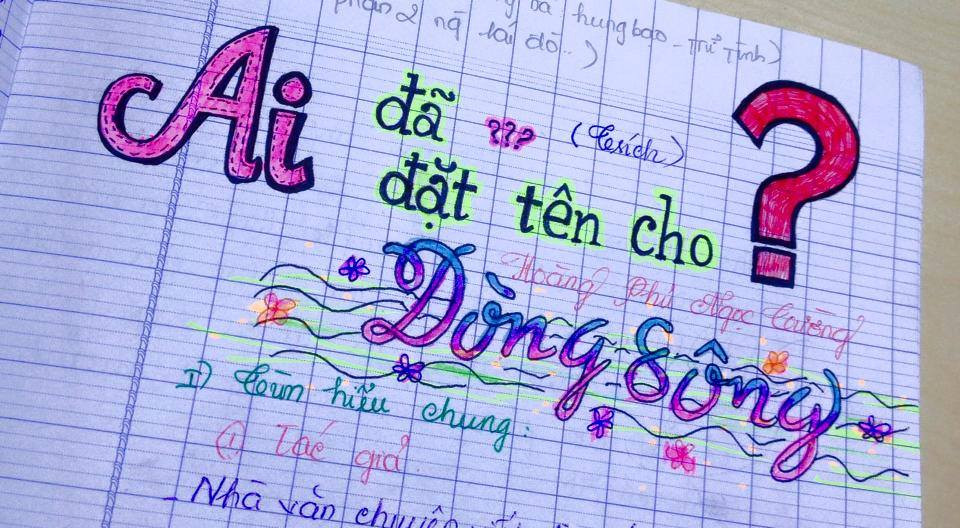 hung bạo - Trữ Tình)
phần 2 lái đò..)
Ai đã ??? (Trích)
đặt tên cho ?
Dòng Sông
Hoàng Phủ Ngọc Tường
I) Tìm hiểu chung:
① Tác giả
- Nhà văn chuyên